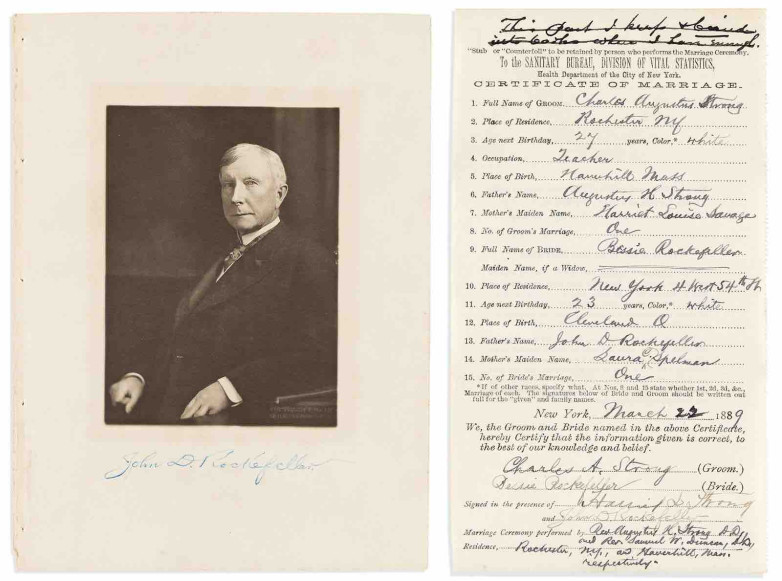 John D. Rockefeller
This part I keep & binde
into books when I have enough.
"Stub or "Counterfoil" to be retained by person who performs the Marriage Ceremony.
To the SANITARY BUREAU, DIVISION OF VITAL STATISTICS,
Health Department of the City of New York.
CERTIFICATE OF MARRIAGE.
1. Full Name of GROOM. Charles Augustus Strong
2. Place of Residence, Rochester NY
3. Age next Birthday, 27 years, Color,* white
4. Occupation, Teacher
5. Place of Birth, Haverhill Mass
6. Father's Name, Augustus H Strong
7. Mother's Maiden Name, Harriet Louise Savage
8. No. of Groom's Marriage, One
9. Full Name of BRIDE. Bessie Rockefeller
Maiden Name, if a Widow,
10. Place of Residence, New York 4 West 54th St
11. Age next Birthday, 23 years, Color,* white
12. Place of Birth, Cleveland O
13. Father's Name, John D Rockefeller
14. Mother's Maiden Name, Laura C Spelman
15. No. of Bride's Marriage, One
*If of other races, specify what. At Nos. 8 and 15 state whether 1st, 2d, 3d, &c.,
Marriage of each. The signatures below of Bride and Groom should be written out
full for the "given" and family names.
New York, March 22 1889
We, the Groom and Bride named in the above Certificate,
hereby Certify that the information given is correct, to
the best of our knowledge and belief.
Charles A. Strong (Groom.)
Bessie Rockefeller (Bride.)
Signed in the presence of Harriet L. Strong
and John D Rockefeller
Marriage Ceremony performed by Rev Augustus H. Strong D.D.,
and Rev. Samuel W. Duncan, D.D.,
Residence, Rochester, N.Y., and Haverhill, Mass.
respectively.